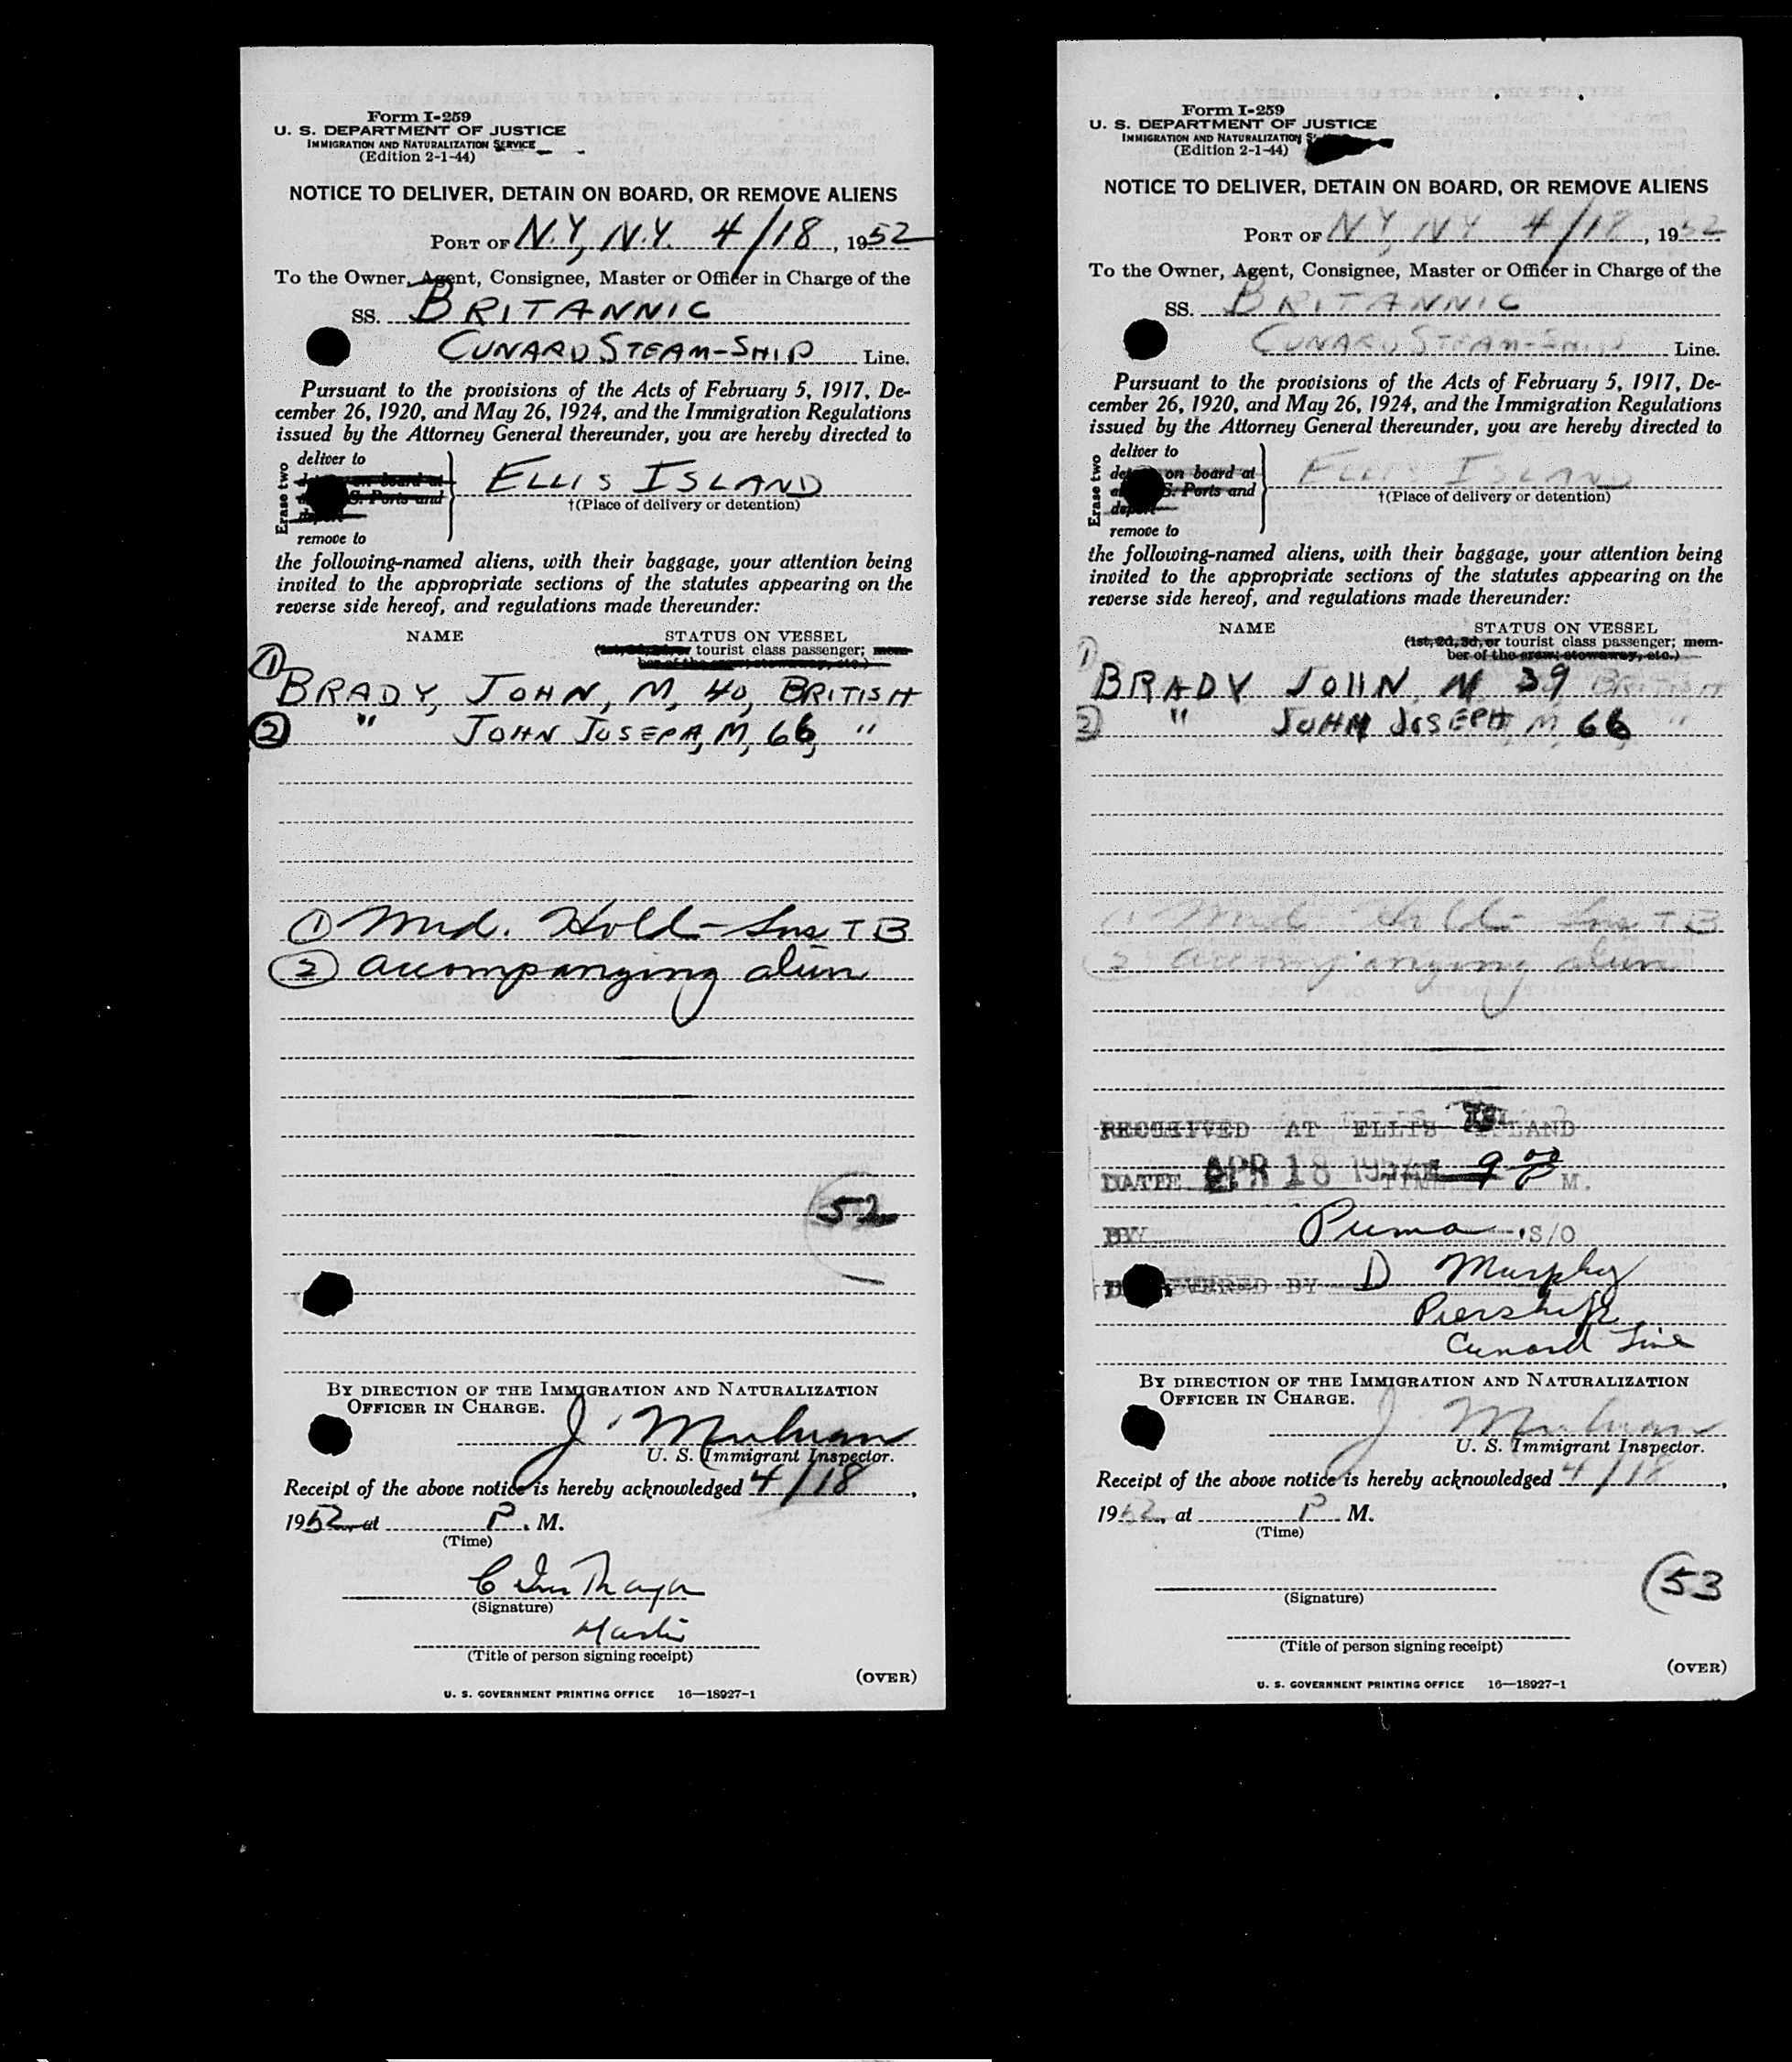 Form I-259
U. S. DEPARTMENT OF JUSTICE
IMMIGRATION AND NATURALIZATION SERVICE
(Edition 2-1-44)
NOTICE TO DELIVER, DETAIN ON BOARD, OR REMOVE ALIENS
PORT OF N.Y, N.Y. 4/18, 1952
To the Owner, Agent, Consignee, Master or Officer in Charge of the
SS. BRITANNIC
CUNARD STEAM-SHIP Line.
Pursuant to the provisions of the Acts of February 5, 1917, De-
cember 26, 1920, and May 26, 1924, and the Immigration Regulations
issued by the Attorney General thereunder, you are hereby directed to
Erase two
deliver to
on board at
S. Ports and
deport
remove to
ELLIS ISLAND
†(Place of delivery or detention)
the following-named aliens, with their baggage, your attention being
invited to the appropriate sections of the statutes appearing on the
reverse side hereof, and regulations made thereunder:
NAME STATUS ON VESSEL
(1st, 2d, 3d, or tourist class passenger; mem-
ber of the crew; stowaway, etc.)
① BRADY, JOHN, M, 40, BRITISH
② " JOHN JOSEPH, M, 66, "
① Med. Hold - Sus TB
② accompanying alien
52
BY DIRECTION OF THE IMMIGRATION AND NATURALIZATION
OFFICER IN CHARGE.
J.
U. S. Immigrant Inspector.
Receipt of the above notice is hereby acknowledged 4/18,
1952, at P. M.
(Time)
(Signature)
(Title of person signing receipt)
(OVER)
U. S. GOVERNMENT PRINTING OFFICE 16—18927-1
Form I-259
U. S. DEPARTMENT OF JUSTICE
IMMIGRATION AND NATURALIZATION
(Edition 2-1-44)
NOTICE TO DELIVER, DETAIN ON BOARD, OR REMOVE ALIENS
PORT OF NY, NY 4/18, 1952
To the Owner, Agent, Consignee, Master or Officer in Charge of the
SS. BRITANNIC
CUNARD STEAM-SHIP Line.
Pursuant to the provisions of the Acts of February 5, 1917, De-
cember 26, 1920, and May 26, 1924, and the Immigration Regulations
issued by the Attorney General thereunder, you are hereby directed to
Erase two
deliver to
on board at
S. Ports and
deport
remove to
ELLIS ISLAND
†(Place of delivery or detention)
the following-named aliens, with their baggage, your attention being
invited to the appropriate sections of the statutes appearing on the
reverse side hereof, and regulations made thereunder:
NAME STATUS ON VESSEL
(1st, 2d, 3d, or tourist class passenger; mem-
ber of the crew; stowaway, etc.)
① BRADY JOHN M 39 BRITISH
② " JOHN JOSEPH, M 66 "
① Med. Hold - Sus TB
② accompanying alien
RECEIVED AT ELLIS ISLAND
DATE APR 18 1952 TIME 9 00 P M.
BY Puma S/O
DELIVERED BY D Murphy
Cunard Line
BY DIRECTION OF THE IMMIGRATION AND NATURALIZATION
OFFICER IN CHARGE.
J.
U. S. Immigrant Inspector.
Receipt of the above notice is hereby acknowledged 4/18,
1952, at P. M.
(Time)
53
(Signature)
(Title of person signing receipt)
(OVER)
U. S. GOVERNMENT PRINTING OFFICE 16—18927-1